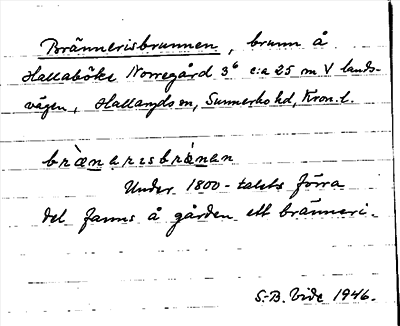 Brännerisbrunnen, brunn å
Hallaböke Norregård 3⁶ c:a 25 m V lands-
vägen, Hallaryds sn, Sunnerbo hd, Kron. l.
brænarısbrɩnan
Under 1800-talets förra
del fanns å gården ett bränneri.
S.-B. Vide 1946.